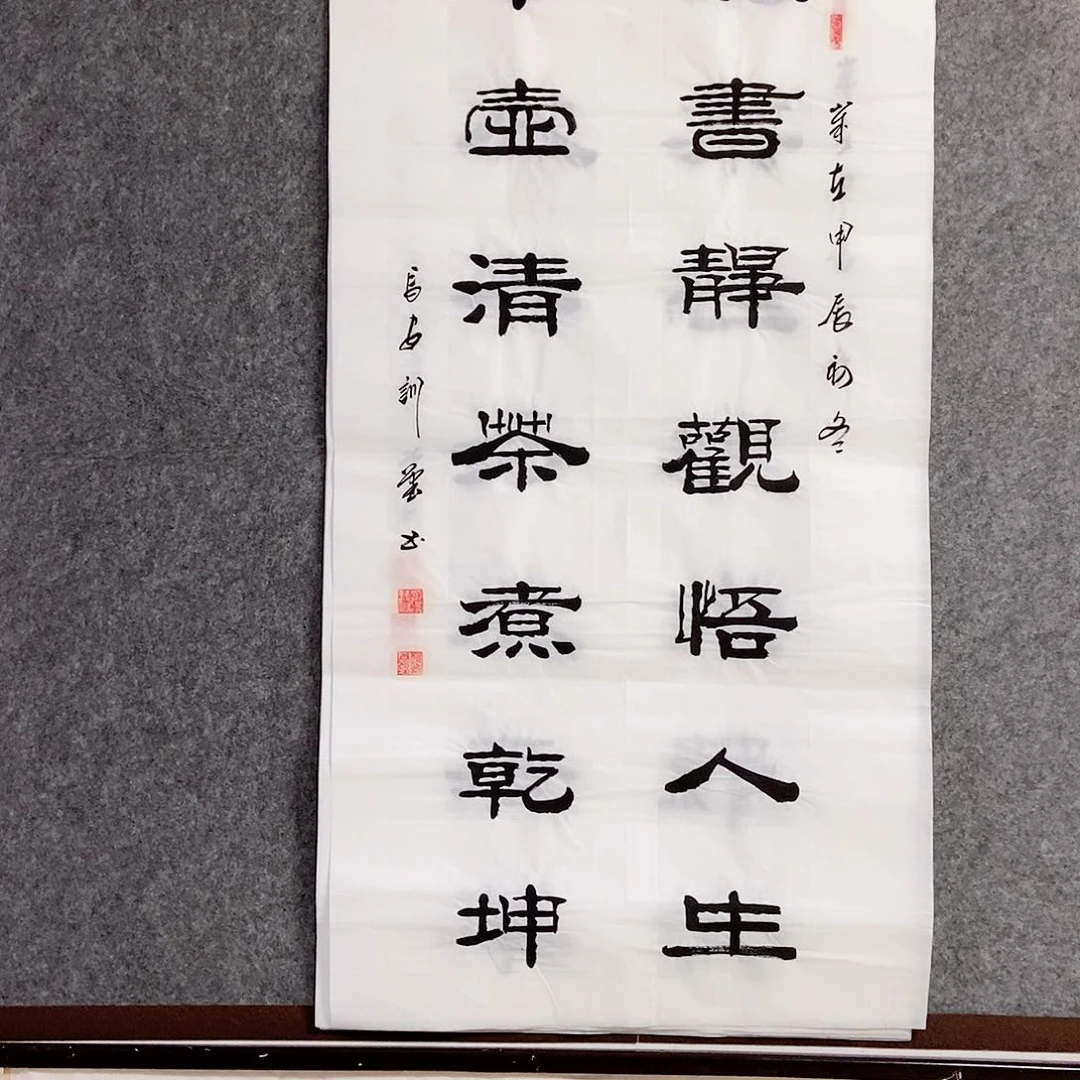 歲在甲辰初冬
書靜觀悟人生
壺清茶煮乾坤
馬安訓书